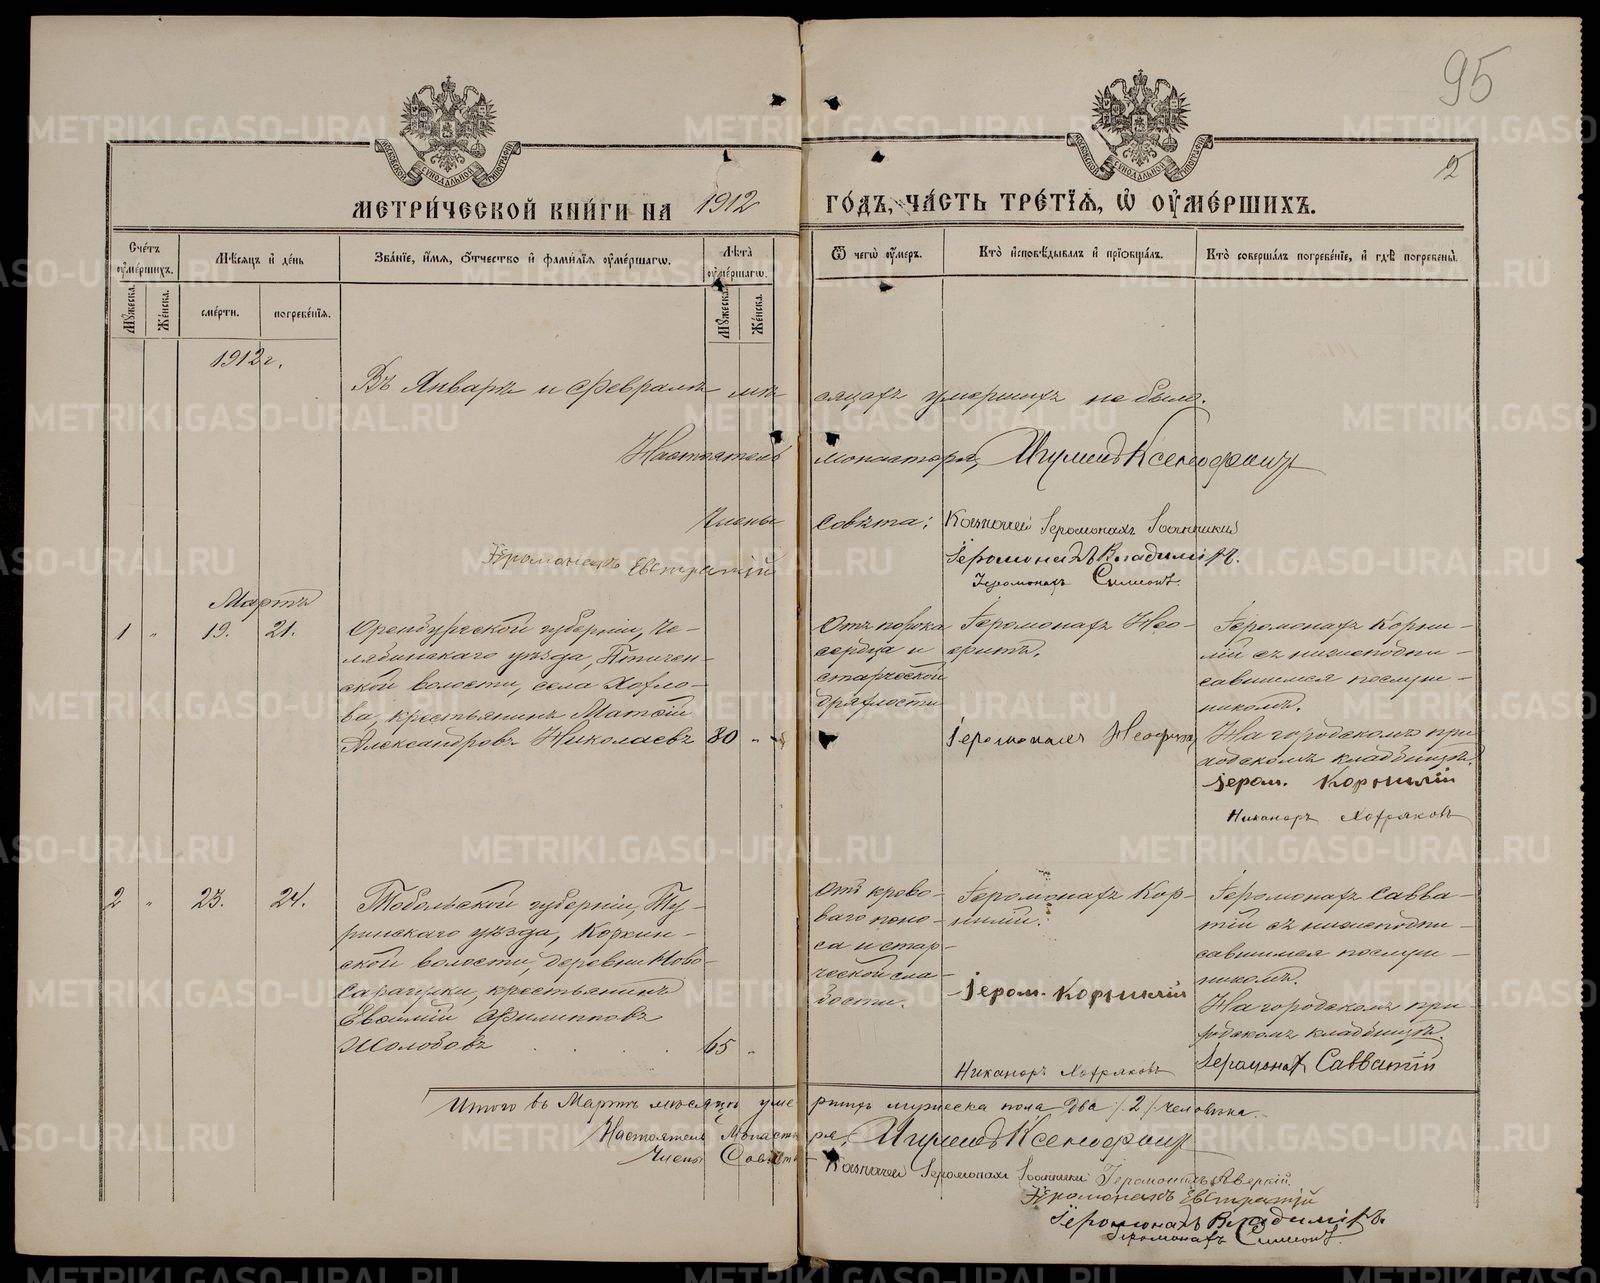 95
2
МЕТРИ́ЧЕСКОЙ КНИ́ГИ НА 1912 ГО́ДЪ, ЧА́СТЬ ТРЕ́ТІѦ, Ѡ ОУМЕ́РШИХЪ.
Сче́тъ оуме́ршихъ.
Мѣ́сѧцъ и де́нь
Зва́нїе, и́мѧ, о́тчество и фами́лїѧ оуме́ршагѡ.
Лѣ́та оуме́ршагѡ.
Ѿ чегѡ̀ оу́меръ.
Кто̀ и҆сповѣ́дывалъ и҆ прїѡбща́лъ.
Кто̀ соверша́лъ погребе́нїе, и҆ гдѣ̀ погребены̀.
Му́жеска.
Же́нска.
сме́рти.
погребе́нїѧ.
Му́жеска.
Же́нска.
1912 г.
Въ Январѣ и Февралѣ мѣсяцахъ умершихъ не было.
Настоятель монастыря, Игуменъ Ксенофонтъ
Члены совѣта: Казначей Іеромонахъ Іоанникій
Іеромонахъ Евстратій
Іеромонахъ Владиміръ.
Іеромонахъ Симеонъ.
Мартъ
1 " 19. 21.
Оренбургской губерніи, Че-
лябинскаго уѣзда, Птичен-
ской волости, села Хохло-
ва, крестьянинъ Матѳій
Александровъ Николаевъ 80 "
Отъ порока
сердца и
старческой
дряхлости
Іеромонахъ Нео-
фитъ.
Іеромонахъ Неофитъ
Іеромонахъ Корни-
лій съ нижеподпи-
савшимся послуш-
никомъ.
На городскомъ при-
ходскомъ кладбищѣ.
Іером. Корнилій
Никаноръ Хохряковъ
2 " 23. 24.
Тобольской губерніи, Ту-
ринскаго уѣзда, Коркин-
ской волости, деревни Ново-
Сарагулки, крестьянинъ
Евѳимій Филипповъ
Жолобовъ 65 "
Отъ крова-
ваго поно-
са и стар-
ческой сла-
бости.
Іеромонахъ Кор-
нилій.
Іером. Корнилій
Никаноръ Хохряковъ
Іеромонахъ Савва-
тій съ нижеподпи-
савшимся послуш-
никомъ.
На городскомъ при-
ходскомъ кладбищѣ.
Іеромонахъ Савватій
Итого въ Мартѣ мѣсяцѣ умершихъ мужеска пола два /2/ человѣка.
Настоятель Монастыря, Игуменъ Ксенофонтъ
Члены Совѣта Казначей Іеромонахъ Іоанникій Іеромонахъ Аверкій.
Іеромонахъ Евстратій
Іеромонахъ Владиміръ.
Іеромонахъ Симеонъ.
METRIKI.GASO-URAL.RU